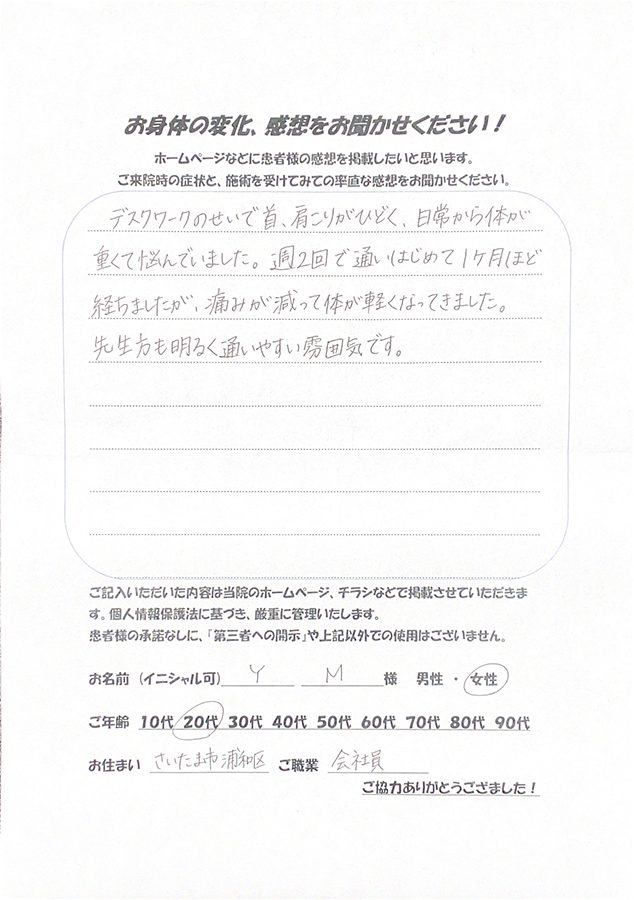 お身体の変化、感想をお聞かせください！
ホームページなどに患者様の感想を掲載したいと思います。
ご来院時の症状と、施術を受けてみての率直な感想をお聞かせください。
デスクワークのせいで首、肩こりがひどく、日常から体が
重くて悩んでいました。週2回で通いはじめて1ヶ月ほど
経ちましたが、痛みが減って体が軽くなってきました。
先生方も明るく通いやすい雰囲気です。
ご記入いただいた内容は当院のホームページ、チラシなどで掲載させていただきま
す。個人情報保護法に基づき、厳重に管理いたします。
患者様の承諾なしに、「第三者への開示」や上記以外での使用はございません。
お名前（イニシャル可） Y M 様 男性 ・ 女性
ご年齢 10代 20代 30代 40代 50代 60代 70代 80代 90代
お住まい さいたま市浦和区 ご職業 会社員
ご協力ありがとうござました！